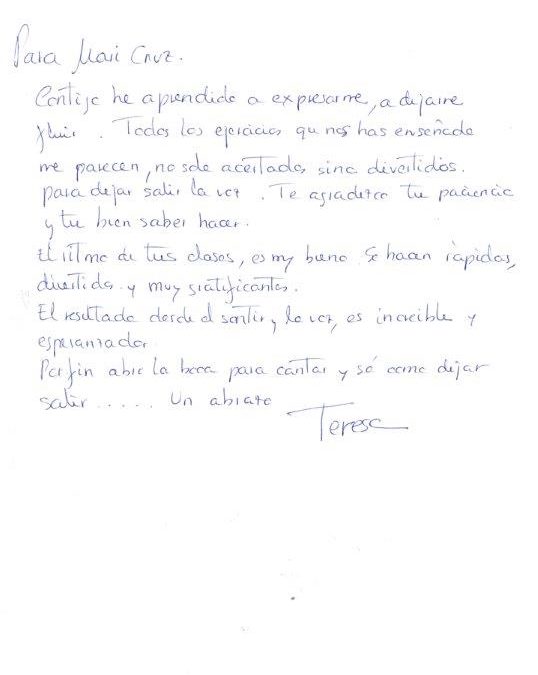 Para Mari Cruz.
Contigo he aprendido a expresarme, a dejarme
fluir. Todos los ejercicios que nos has enseñado
me parecen, no solo acertados sino divertidos.
para dejar salir la voz. Te agradezco tu paciencia
y tu bien saber hacer.
El ritmo de tus clases, es muy bueno. Se hacen rápidas,
divertidas y muy gratificantes.
El resultado desde el sentir y la voz, es increíble y
esperanzador.
Por fin abro la boca para cantar y sé como dejar
salir..... Un abrazo
Teresa